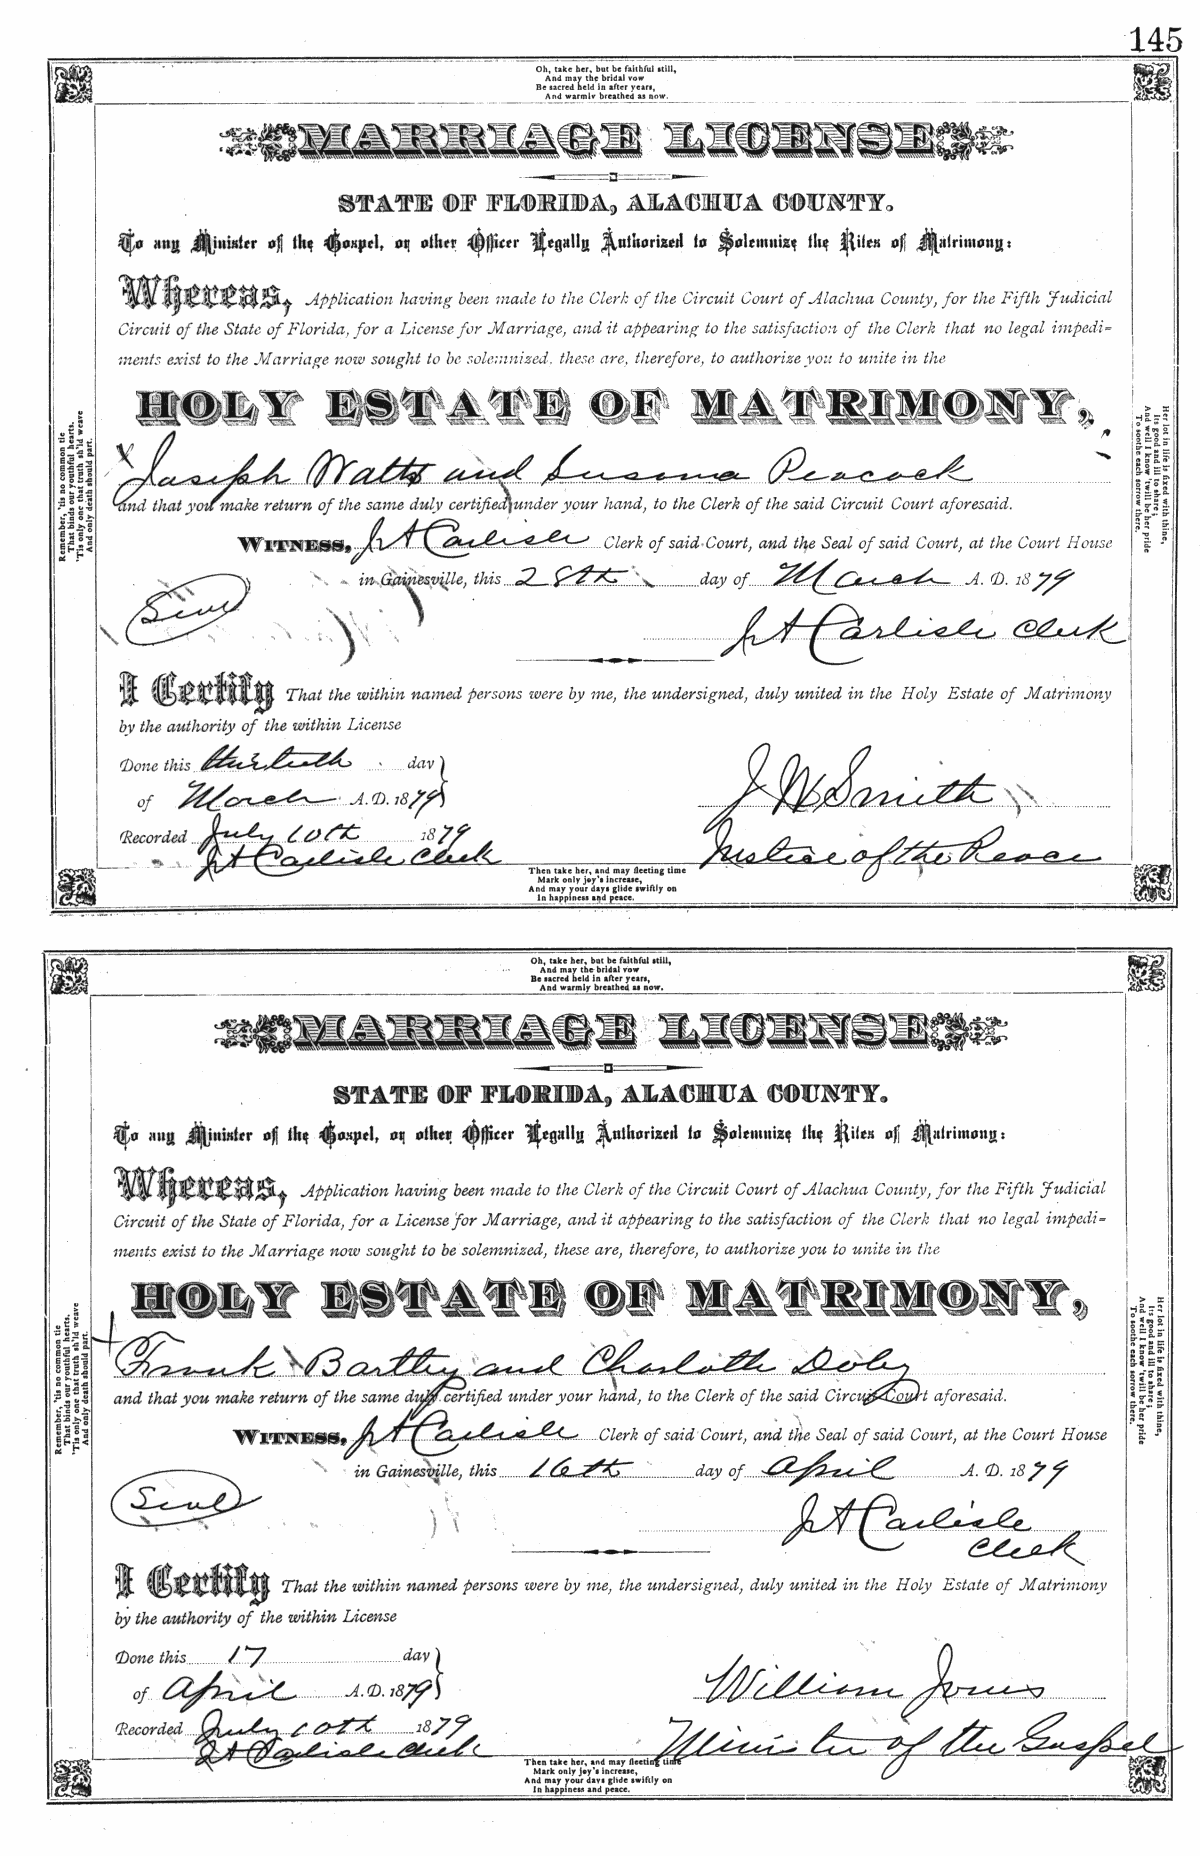 145
Oh, take her, but be faithful still,
And may the bridal vow
Be sacred held in after years,
And warmly breathed as now.
MARRIAGE LICENSE
STATE OF FLORIDA, ALACHUA COUNTY.
To any Minister of the Gospel, or other Officer Legally Authorized to Solemnize the Rites of Matrimony:
Whereas, Application having been made to the Clerk of the Circuit Court of Alachua County, for the Fifth Judicial
Circuit of the State of Florida, for a License for Marriage, and it appearing to the satisfaction of the Clerk that no legal impedi-
ments exist to the Marriage now sought to be solemnized, these are, therefore, to authorize you to unite in the
HOLY ESTATE OF MATRIMONY,
x Joseph Watts and Susona Peacock
and that you make return of the same duly certified under your hand, to the Clerk of the said Circuit Court aforesaid.
WITNESS, J A Carlisle Clerk of said Court, and the Seal of said Court, at the Court House
in Gainesville, this 28th day of March A. D. 1879
Seal
J A Carlisle Clerk
I Certify That the within named persons were by me, the undersigned, duly united in the Holy Estate of Matrimony
by the authority of the within License
Done this thirtieth day
of March A.D. 1879
J W Smith
Recorded July 10th 1879
J A Carlisle Clerk
Justice of the Peace
Then take her, and may fleeting time
Mark only joy's increase,
And may your days glide swiftly on
In happiness and peace.
Remember, 'tis no common tie
That binds our youthful hearts,
'Tis only one that truth sh'ld weave
And only death should part.
Her lot in life is fixed with thine,
Its good and ill to share;
And well I know 'twill be her pride
To soothe each sorrow there.
Oh, take her, but be faithful still,
And may the bridal vow
Be sacred held in after years,
And warmly breathed as now.
MARRIAGE LICENSE
STATE OF FLORIDA, ALACHUA COUNTY.
To any Minister of the Gospel, or other Officer Legally Authorized to Solemnize the Rites of Matrimony:
Whereas, Application having been made to the Clerk of the Circuit Court of Alachua County, for the Fifth Judicial
Circuit of the State of Florida, for a License for Marriage, and it appearing to the satisfaction of the Clerk that no legal impedi-
ments exist to the Marriage now sought to be solemnized, these are, therefore, to authorize you to unite in the
HOLY ESTATE OF MATRIMONY,
x Frank Bartley and Charlotte Doby
and that you make return of the same duly certified under your hand, to the Clerk of the said Circuit Court aforesaid.
WITNESS, J A Carlisle Clerk of said Court, and the Seal of said Court, at the Court House
in Gainesville, this 16th day of April A. D. 1879
Seal
J A Carlisle
Clerk
I Certify That the within named persons were by me, the undersigned, duly united in the Holy Estate of Matrimony
by the authority of the within License
Done this 17 day
of April A.D. 1879
William Jones
Recorded July 10th 1879
J A Carlisle Clerk
Minister of the Gospel
Then take her, and may fleeting time
Mark only joy's increase,
And may your days glide swiftly on
In happiness and peace.
Remember, 'tis no common tie
That binds our youthful hearts,
'Tis only one that truth sh'ld weave
And only death should part.
Her lot in life is fixed with thine,
Its good and ill to share;
And well I know 'twill be her pride
To soothe each sorrow there.